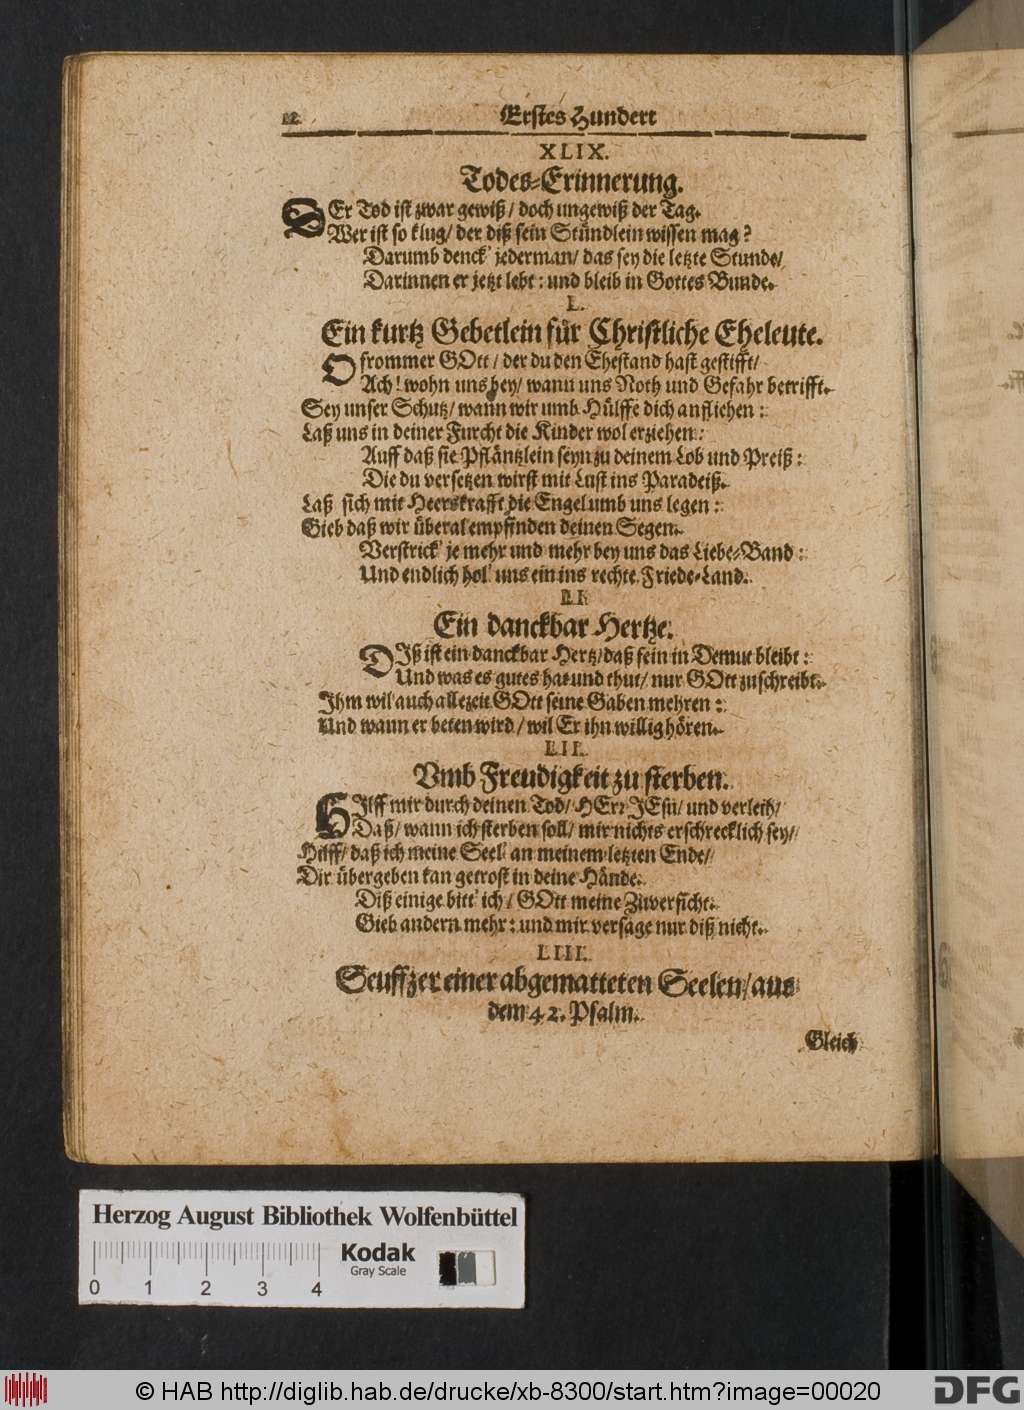 12. Erstes Hundert
XLIX.
Todes-Erinnerung.
DEr Tod ist zwar gewiß / doch ungewiß der Tag.
Wer ist so klug / der diß sein Stündlein wissen mag?
Darumb denck' jederman / das sey die letzte Stunde /
Darinnen er jetzt lebt : und bleib in Gottes Bunde.
L.
Ein kurtz Gebetlein für Christliche Eheleute.
O frommer GOtt / der du den Ehestand hast gestifft /
Ach! wohn uns bey / wann uns Noth und Gefahr betrifft.
Sey unser Schutz / wann wir umb Hülffe dich anfliehen :
Laß uns in deiner Furcht die Kinder wol erziehen :
Auff daß sie Pfläntzlein seyn zu deinem Lob und Preiß :
Die du versetzen wirst mit Lust ins Paradeiß.
Laß sich mit Heerskrafft die Engel umb uns legen :
Gieb daß wir überal empfinden deinen Segen.
Verstrick' je mehr und mehr bey uns das Liebe-Band :
Und endlich hol' uns ein ins rechte Friede-Land.
LI.
Ein danckbar Hertze.
DIß ist ein danckbar Hertz / daß fein in Demut bleibt :
Und was es gutes hat und thut / nur GOtt zuschreibt.
Ihm wil auch allezeit GOtt seine Gaben mehren :
Und wann er beten wird / wil Er ihn willig hören.
LII.
Vmb Freudigkeit zu sterben.
HIlff mir durch deinen Tod / HErr JEsu / und verleih /
Daß / wann ich sterben soll / mir nichts erschrecklich sey /
Hilff / daß ich meine Seel' an meinem letzten Ende /
Dir übergeben kan getrost in deine Hände.
Diß einige bitt' ich / GOtt meine Zuversicht.
Gieb andern mehr : und mir versage nur diß nicht.
LIII.
Seuffzer einer abgematteten Seelen / aus
dem 42. Psalm.
Gleich
Herzog August Bibliothek Wolfenbüttel
Kodak
Gray Scale
0 1 2 3 4
© HAB http://diglib.hab.de/drucke/xb-8300/start.htm?image=00020
DFG